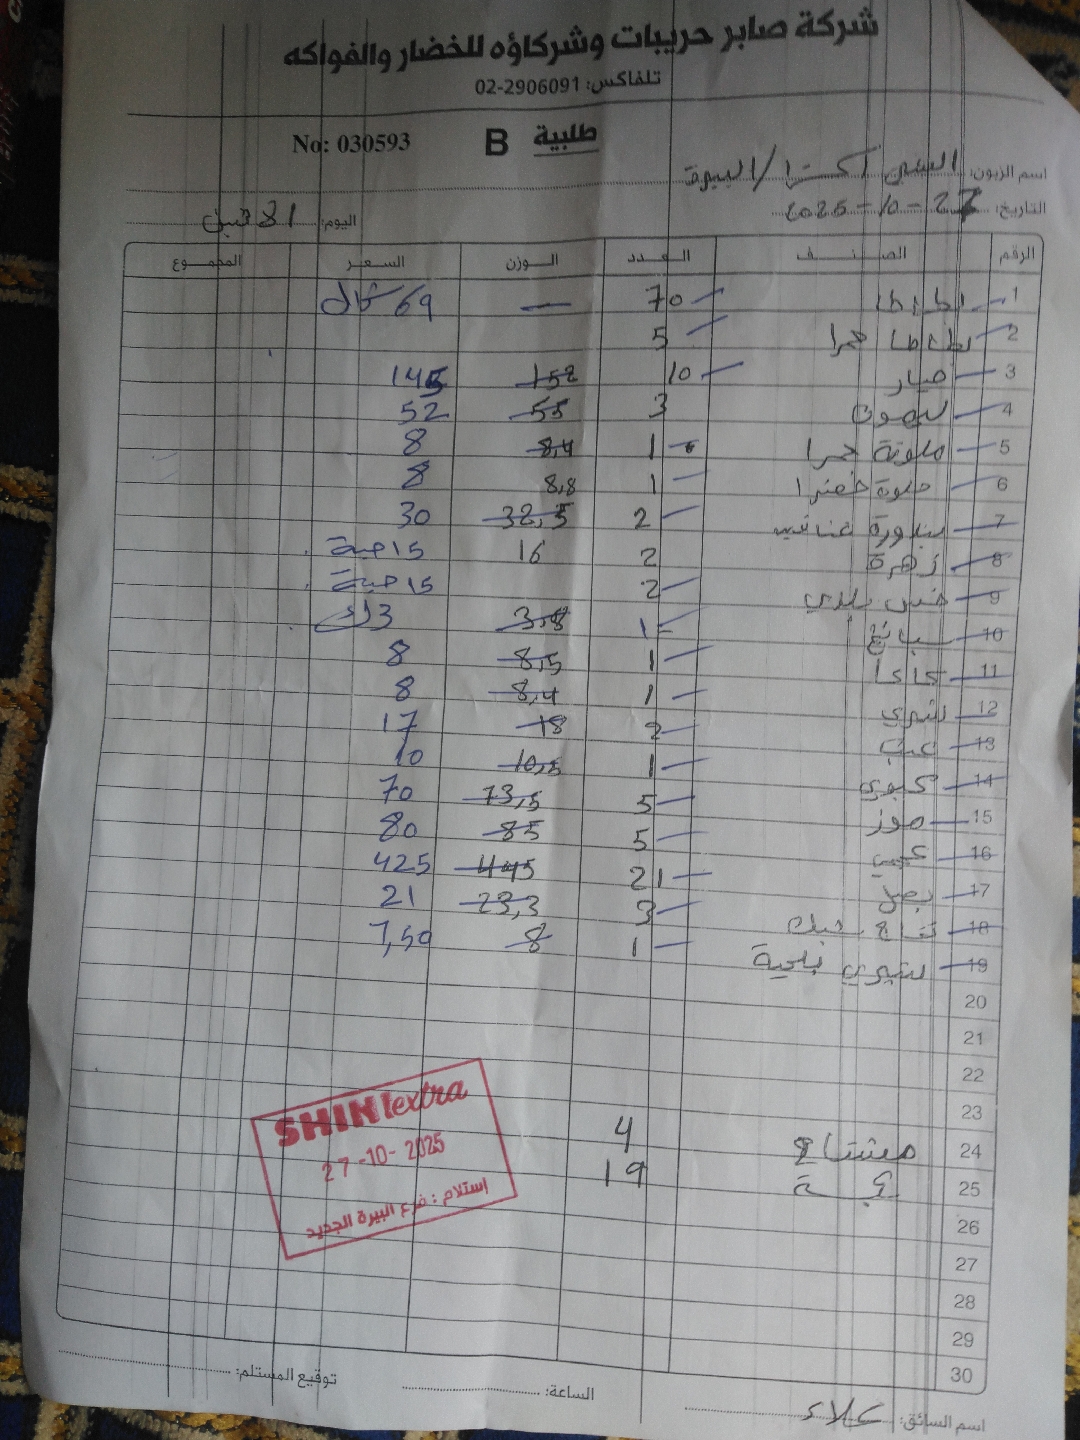 شركة صابر حريبات وشركاؤه للخضار والفواكه
تلفاكس: 02-2906091
طلبية B No: 030593
اسم الزبون: الشني اكسترا / البيرة
التاريخ: 27-10-2025 اليوم: الاثنين
الرقم الصنف العدد الوزن السعر المجموع
1 بطاطا 70 — 69
2 بطاطا حمرا 5
3 خيار 10 152 145
4 ليمون 3 55 52
5 حلوة حمرا 1 8,4 8
6 حلوة خضرا 1 8,8 8
7 بندورة عناقيد 2 32,5 30
8 زهرة 2 16 15 حبة
9 خس بلدي 2 15 حبة
10 سبانخ 1 3,8
11 كاكا 1 8,5 8
12 شيري 1 8,4 8
13 عنب 2 18 17
14 كيوي 1 10,5 10
15 موز 5 73,5 70
16 5 85 80
17 بصل 21 445 425
18 تفاح 3 23,3 21
19 شيري بلحية 1 8 7,50
20
21
22
23
24 مشتاح 4
25 19
26
27
28
29
30
SHINI extra
27-10-2025
إستلام: فرع البيرة الجديد
اسم السائق: علاء الساعة: توقيع المستلم: